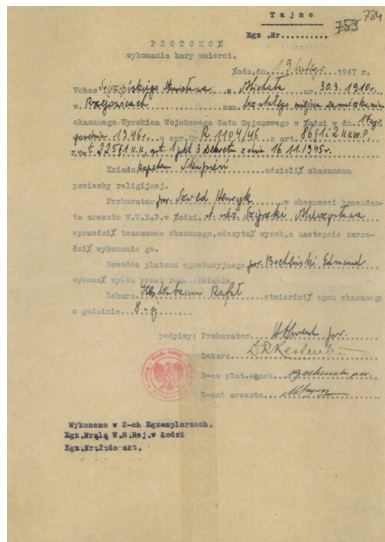 784
T a j n e
Egz.Nr.......... 783
PROTOKÓŁ
wykonania kary śmierci.
Łódź, dn. 19 lutego 1947 r.
Wobec Mirosława s. Michała ur. 30.3.1910r.
w. zam. bez stałego miejsca zamieszkania
skazanego Wyrokiem Wojskowego Sądu Rejonowego w Łodzi w dn. 17
grudnia 1946 r. w spr. Nr. R 1104/46 z art. 86 § 1 i 2 KKWP
z art 225 § 1 KK, art. 1 pkt 3 Dekretu z dnia 16.11.1945r.
Ksiądz Kapelan udzielił skazanemu
pociechy religijnej.
Prokurator por. Szwed Henryk w obecności komendan-
ta aresztu W.U.B.P. w Łodzi Mieczysława
sprawdził tożsamość skazanego, odczytał wyrok, a następnie zarzą-
dził wykonanie go.
Dowódca plutonu egzekucyjnego por. Edmund
wykonał wyrok przez rozstrzelanie
Lekarz Rafał stwierdził zgon skazanego
o godzinie 8-ej
podpisy: Prokurator por.
Lekarz
D-ca plut.egzek.
K-ant aresztu
Wykonano w 2-ch Egzemplarzach.
Egz.Nr.1 la W.S.Rej.w Łodzi
Egz.Nr:2:do akt.